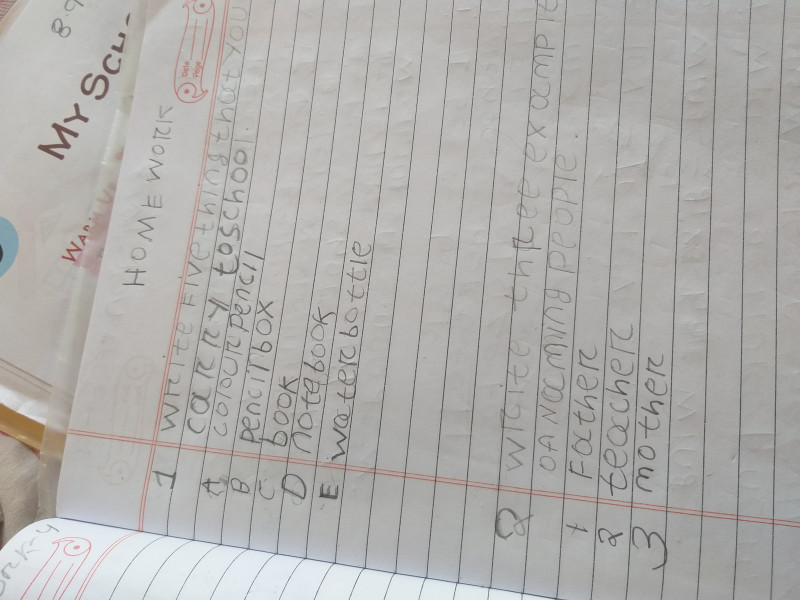 8.9
MY SCH
HOME WORK
Date
Page
1 WRITE FIVE thing that YOU
CARRY to school.
A colour pencil
B pencil box
C book
D notebook
E water bottle
2 WRITE three example
OF NAMING PEOPLE.
1 Father
2 teacher
3 mother